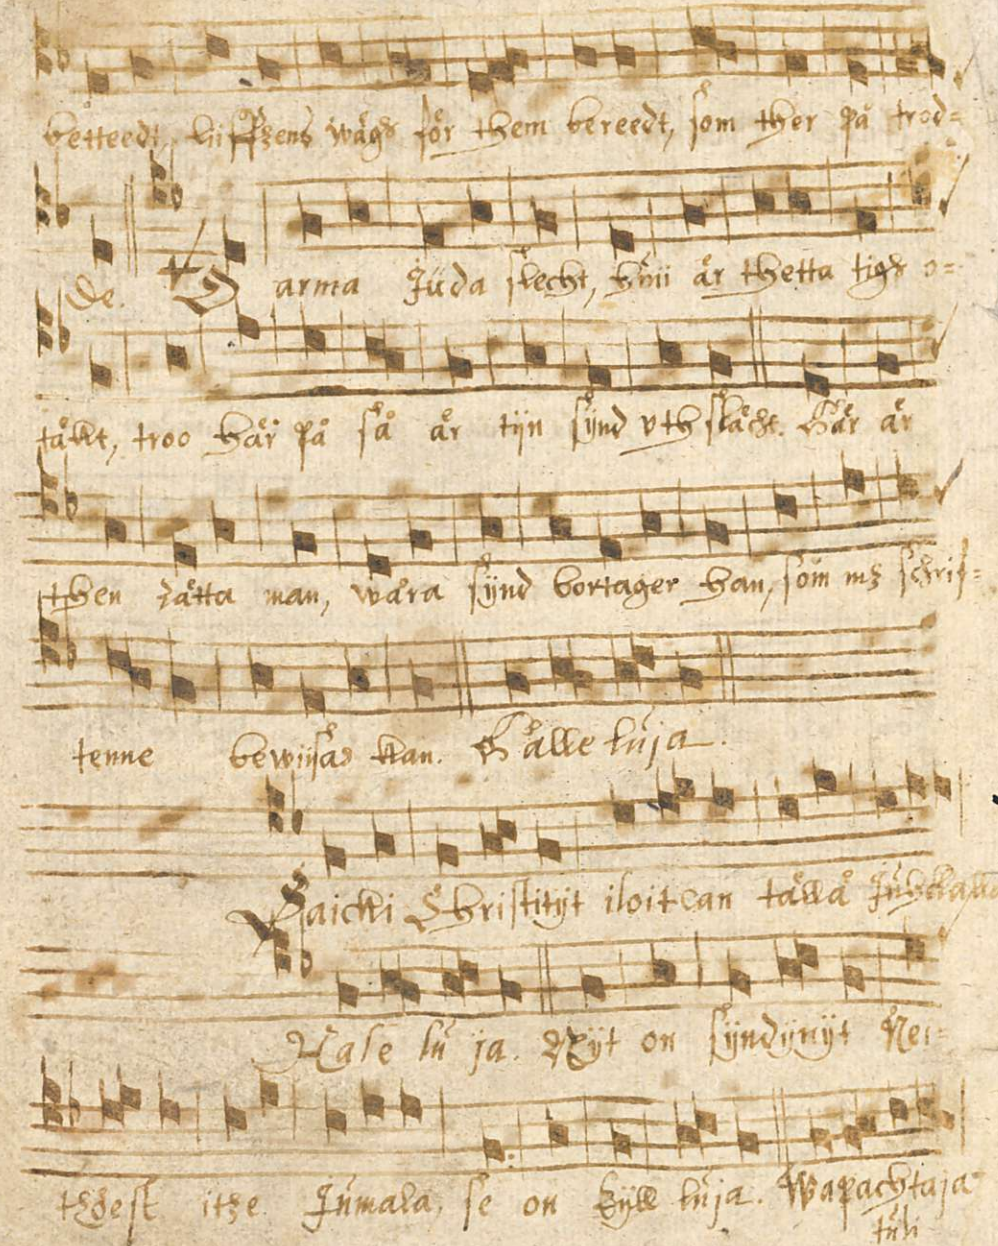 betteedt, liiffzens wägh för them bereedt, som ther på trod=
de. O arma Juda slecht, huii är thetta tigh o=
täkt, troo här på så är tijn synd vthslächt. Här är
then rätta man, wåra synd bortager han, som mz schrif=
tenne bewijsas kan. Halleluja.
Kaicki Christityt iloitcan tällä
Haleluja. Nyt on syndynyt Nei=
tzest itze Jumala, se on kyll luja. Wapachtaja
tuli